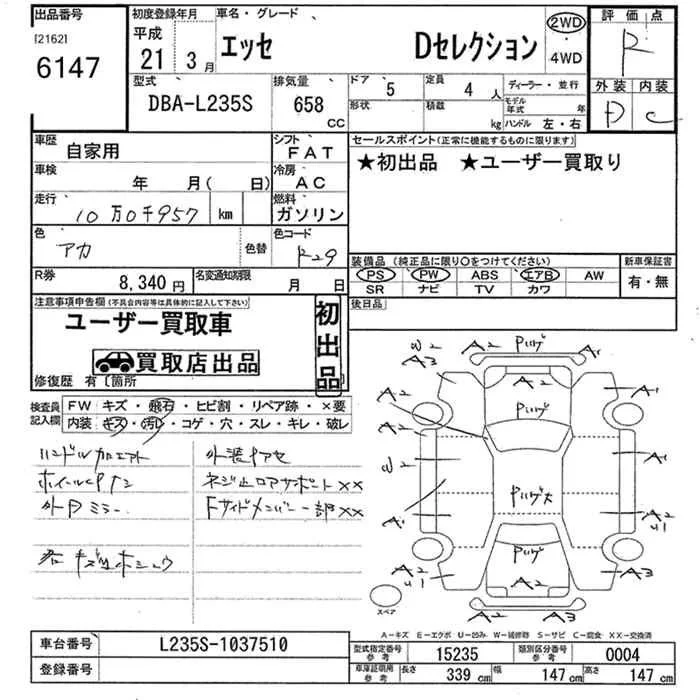 出品番号 初度登録年月 車名・グレード 2WD・4WD 評価点
[2162]
6147 平成21年3月 エッセ Dセレクション R
型式 DBA-L235S 排気量 658 CC ドア 5 定員 4人 ディーラー・並行 外装 内装
形状 積載 kg モデル年式 年 ハンドル 左・右 D C
車歴 自家用 シフト FAT セールスポイント(正常に機能するものに限ります)
★初出品 ★ユーザー買取り
車検 年 月( 日) 冷房 AC
走行 10万0千957 km 燃料 ガソリン
色 アカ 色替 色コード R29
装備品 (純正品に限り○をつけてください) 新車保証書
PS PW ABS エアB AW 有・無
SR ナビ TV カワ
R券 8,340円 名変通知期限 月 日 後日品
注意事項申告欄(不具合内容等は具体的に記入して下さい)
ユーザー買取車
買取店出品
初出品
修復歴 有〔箇所
検査員記入欄 FW キズ・飛石・ヒビ割・リペア跡・×要
内装 キズ・汚レ・コゲ・穴・スレ・キレ・破レ
外P ミラー
ネジ止ロアサポート XX
Fサイドメンバー一部XX
W2 A3 A2 Pハゲ A1
A2 A2 A1
Pハゲ
A2
W2 A1
Pハゲ大
A1 A2 U1
Pハゲ
A2 U1 A2 A3
A2 A3
スペア
A－キズ E－エクボ U－凹み W－補修跡 S－サビ C－腐食 XX－交換済
車台番号 L235S-1037510 型式指定番号 参考 15235 類別区分番号 参考 0004
登録番号 車庫証明用 参考 長さ 339 cm 幅 147 cm 高さ 147 cm